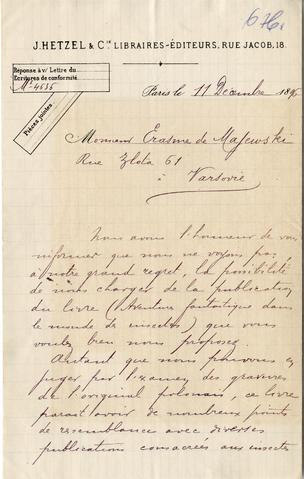 676
J. HETZEL & Cie LIBRAIRES-ÉDITEURS, RUE JACOB, 18.
Réponse à v/ Lettre du
Écritures de conformité
No 4656
Pièces jointes
Paris le 11 Décembre 189
Monsieur Erasme de Majewski
Rue Zlota 61
à Varsovie
Nous avons l'honneur de vous
informer que nous ne voyons pas,
à notre grand regret, la possibilité
de nous charger de la publication
du livre (Aventure fantastique dans
le monde des insectes) que vous
voulez bien nous proposer.
Autant que nous pouvons en
juger par l'examen des gravures
de l'original polonais, ce livre
parait avoir de nombreux points
de ressemblance avec diverses
publications consacrées aux insectes